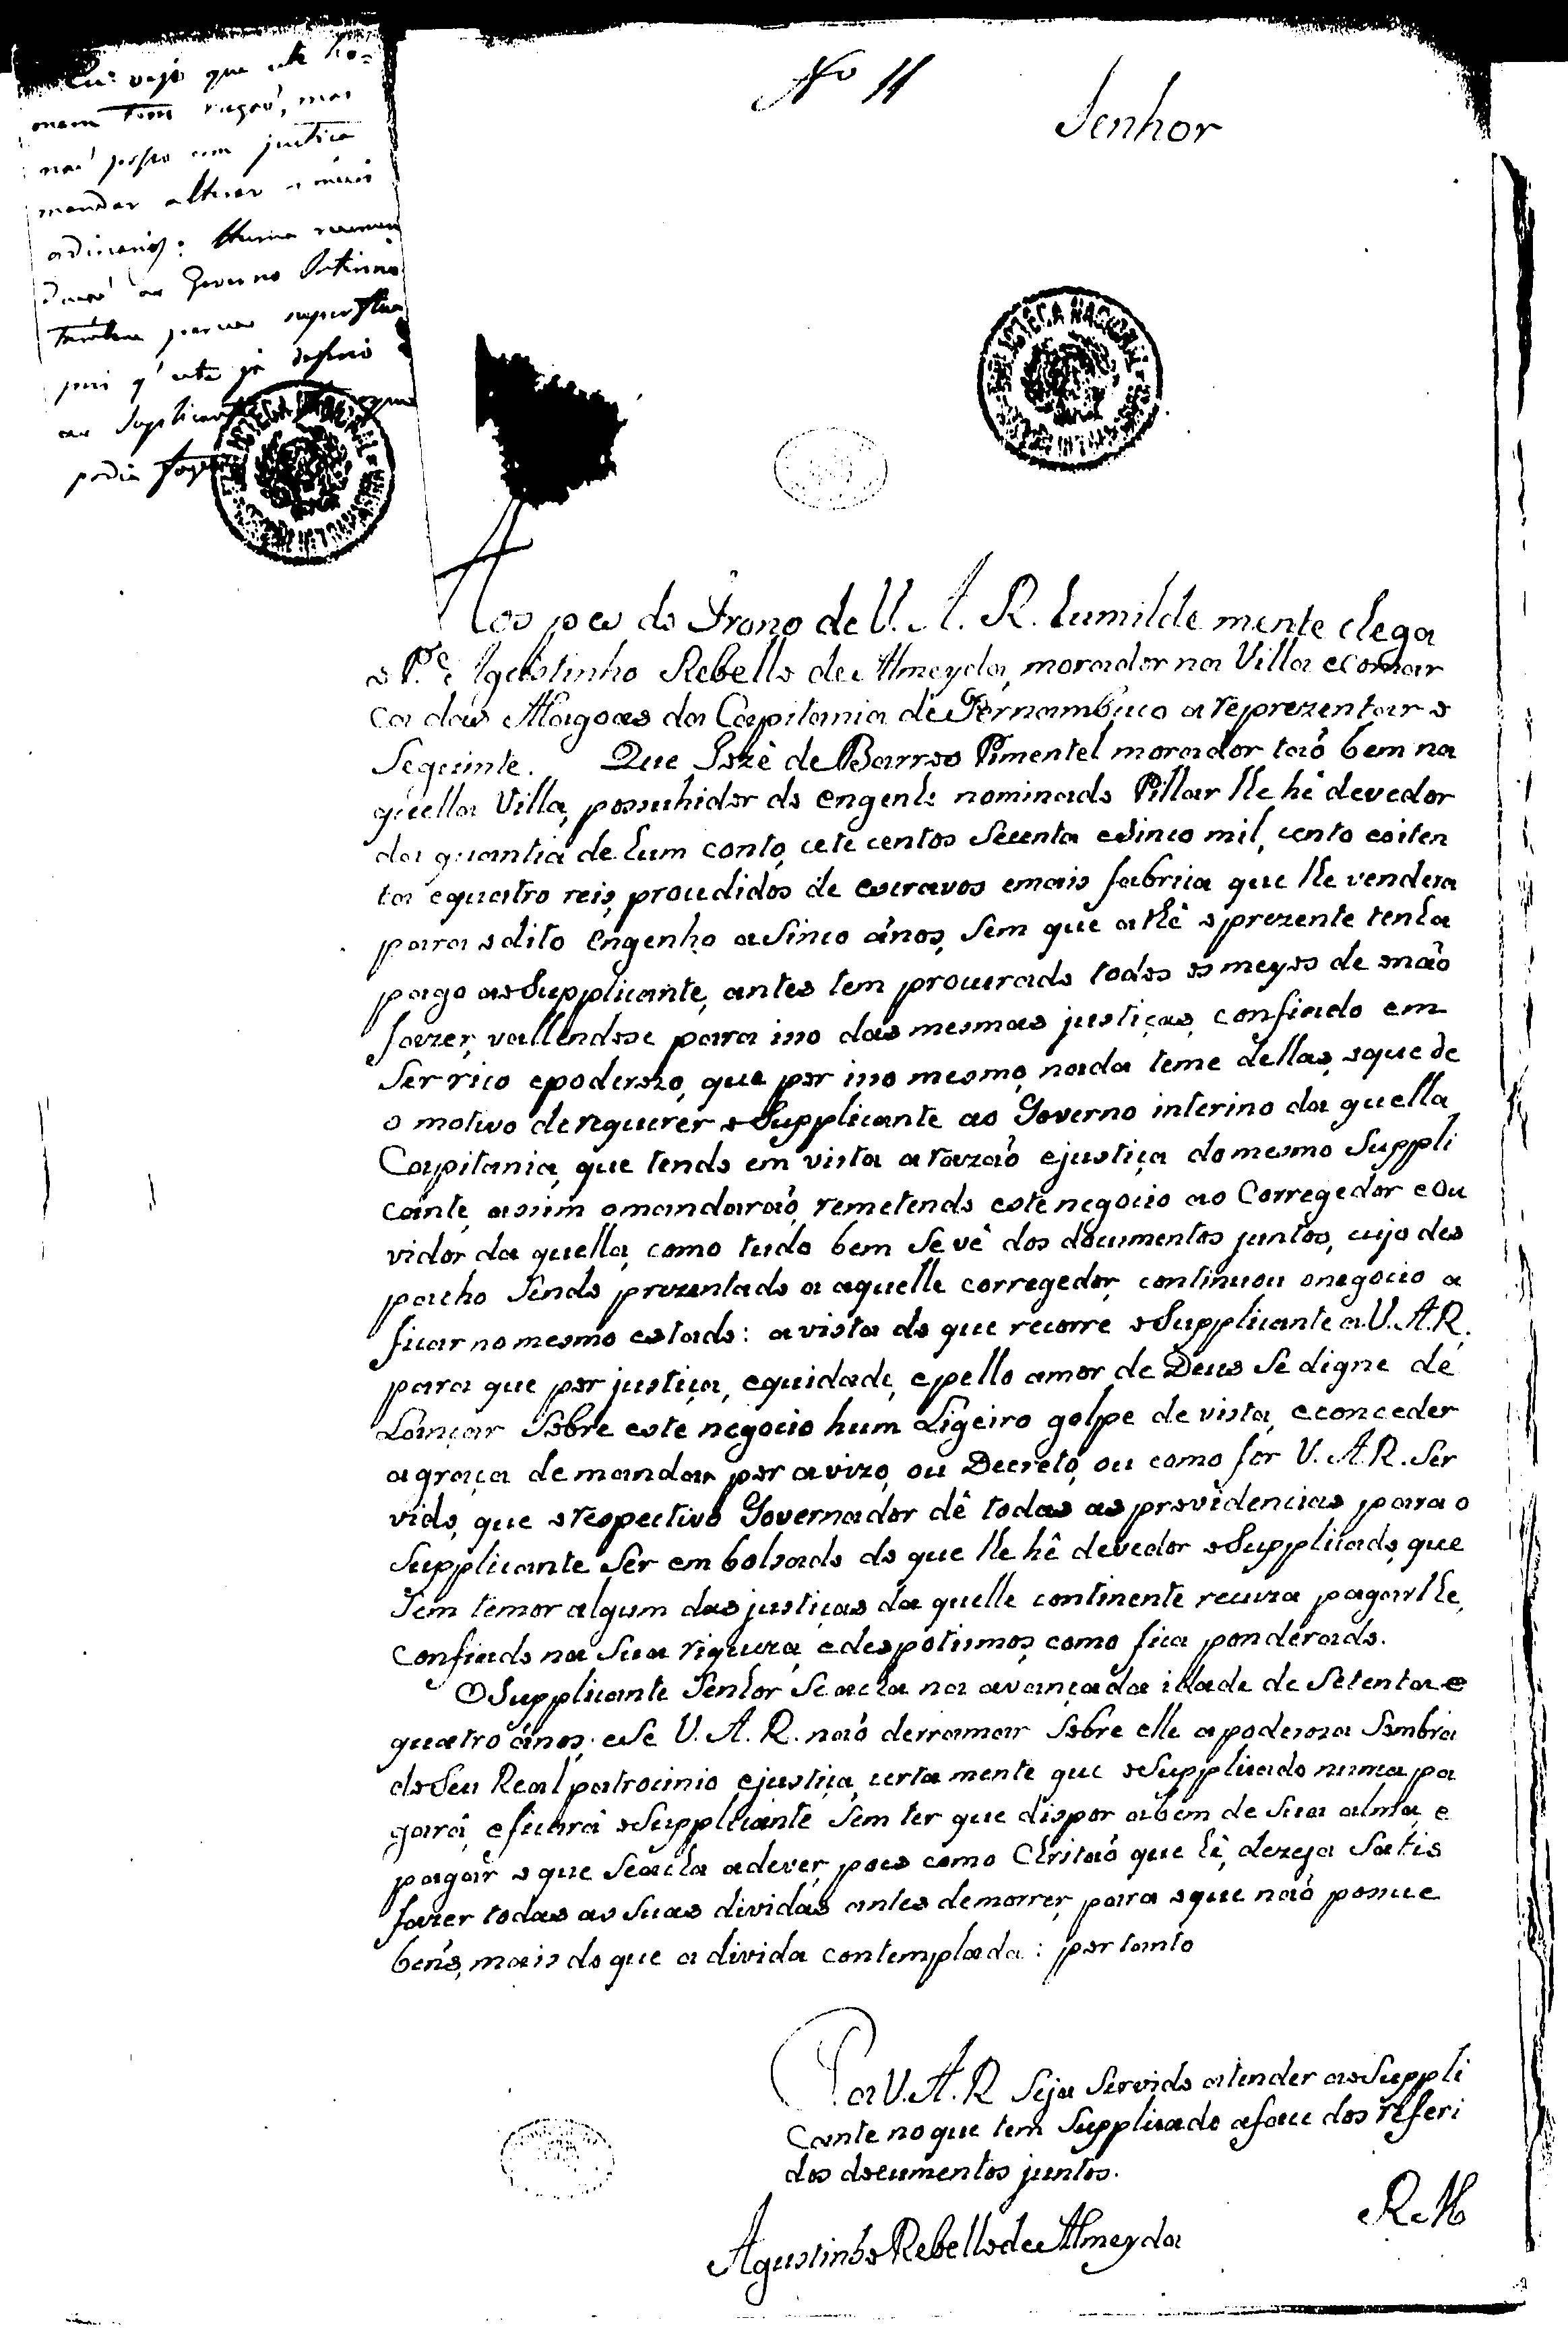 Eu vejo que este ho=
mem tem razaõ, mas
naõ posso com justiça
mandar alterar os meios
ordinarios: Huma recomen
daçaõ ao Governo Interino
tambem parece superflua
pois q' este já deferio
ao Suplicante
podia fazer
Nº 11
Senhor
BIBLIOTECA NACIONAL
BIBLIOTECA NACIONAL
Aos pes do Trono de V. A. R. humilde mente chega
o P.e Agostinho Rebello de Almeyda, morador na Villa e comar
ca das Alagoas da Capitania de Pernambuco a reprezentar o
Seguinte. Que Jozê de Barros Pimentel morador taõ bem na
quella Villa, possuhidor do engenho nominado Pillar lhe hê devedor
da quantia de hum conto, cete centos Secenta e Sinco mil, cento e oiten
ta e quatro reis, procedidos de escravos e mais fabrica que lhe vendera
para o dito engenho a Sinco ánnos, Sem que athê o prezente tenha
pago ao Supplicante, antes tem procurado todos os meyos de o naõ
fazer, vallendose para isso das mesmas justiças, confiado em
Ser rico e poderozo, que por isso mesmo, nada teme dellas, o que de
o motivo de riquerer o Supplicante ao Governo interino da quella
Capitania, que tendo em vista a razaõ e justiça do mesmo Suppli
cante, assim o mandaraõ, remetendo este negocio ao Corregedor e Ou
vidor da quella, como tudo bem Se vê dos documentos juntos, cujo des
pacho Sendo prezentado a aquelle corregedor, continuou o negocio a
ficar no mesmo estado: a vista do que recorre o Supplicante a V. A. R.
para que por justiça, equidade, e pello amor de Deus Se digne de
Lançar Sobre este negocio hum Ligeiro golpe de vista, e conceder
a graça de mandar por avizo, ou Decreto, ou como for V. A. R. Ser
vido, que o respectivo Governador dê todas as providencias para o
Supplicante Ser embolsado do que lhe hê devedor o Supplicado, que
Sem temor algum das justiças da quelle continente recuza pagarlhe,
Confiado na Sua riqueza, e despotismos, como fica ponderado.
O Supplicante Senhor Se acha na avançada idade de Setenta e
quatro ánnos: e Se V. A. R. naõ derramar Sobre elle a poderoza Sombra
do Seu Real patrocinio, e justiça, certa mente que o Supplicado nunca pa
gará, e ficará o Supplicante Sem ter que dispor a bem de Sua alma, e
pagar o que Se acha a dever, pois como Christaõ que hê, dezeja Satis
fazer todas as Suas dividas antes de morrer, para o que naõ possue
bens, mais do que a divida contemplada: por tanto
P. a V. A. R Seja Servido atender ao Suppli
cante no que tem Supplicado a face dos referi
dos documentos juntos.
R M
Agustinho Rebello de Almeyda